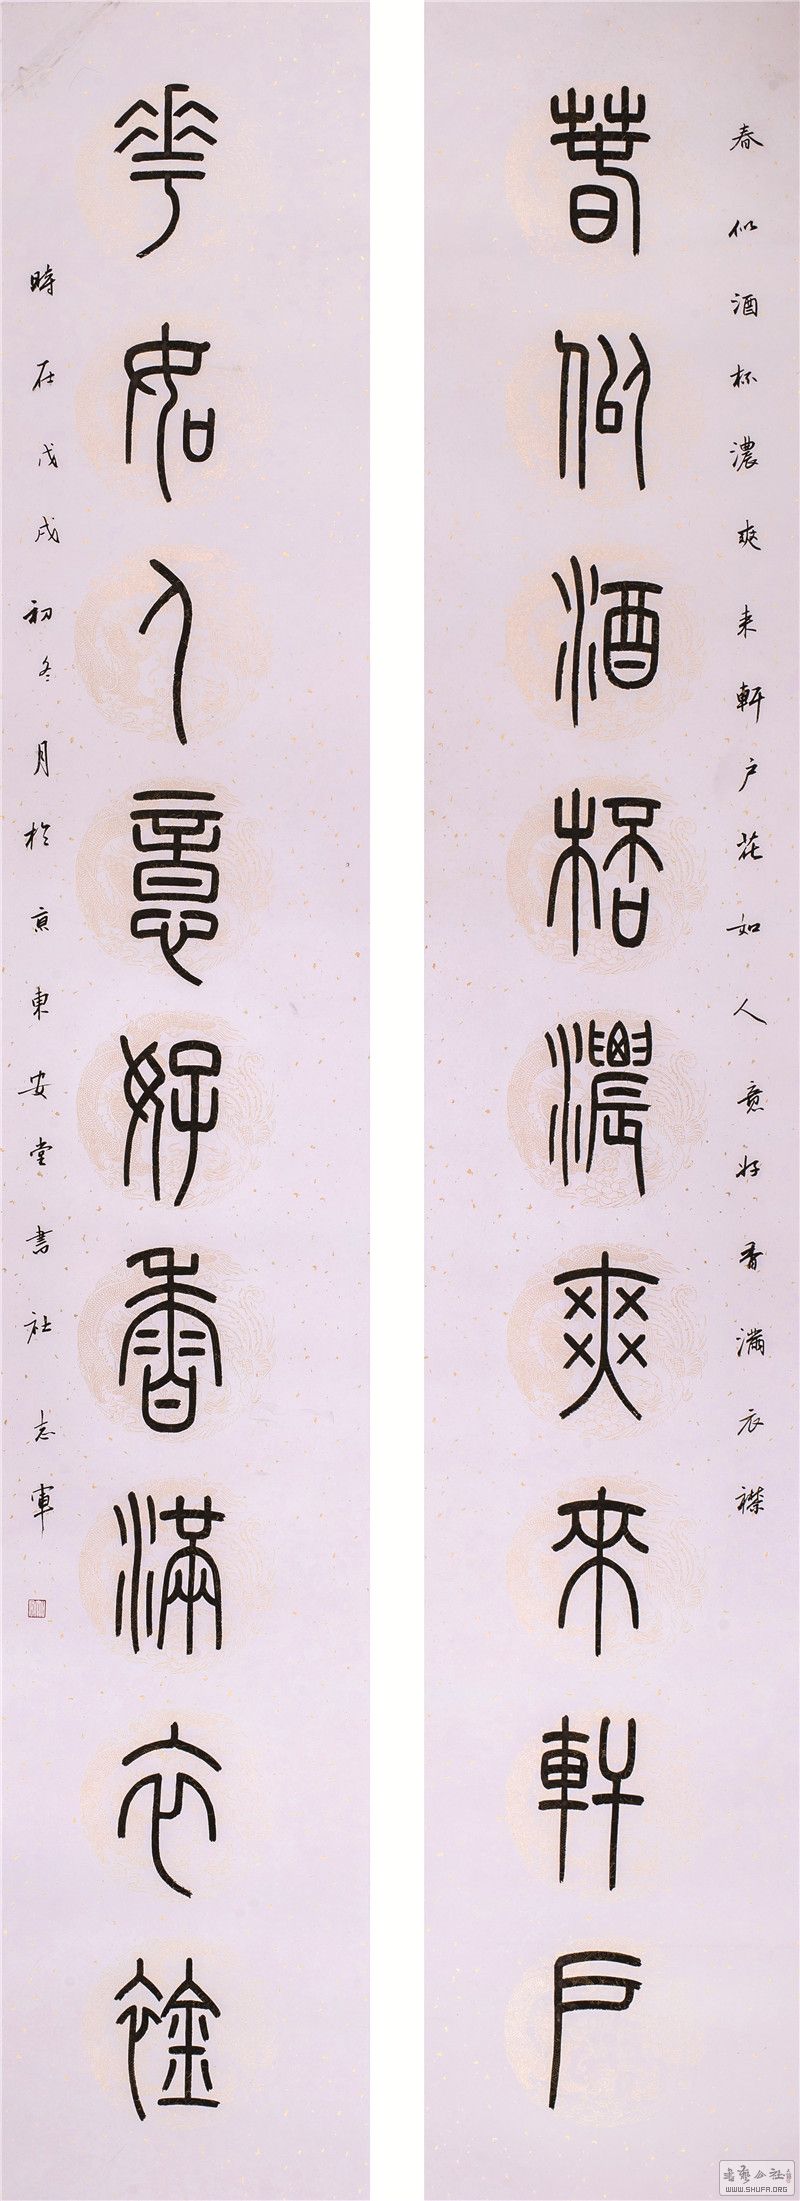 春似酒杯濃爽来軒户花如人意好香滿衣襟
萅佀酒桮濃爽來軒戶
華如人意好香滿衣䘳
時在戊戌初冬月於京東安堂書社志軍
書藝公社
WWW.SHUFA.ORG